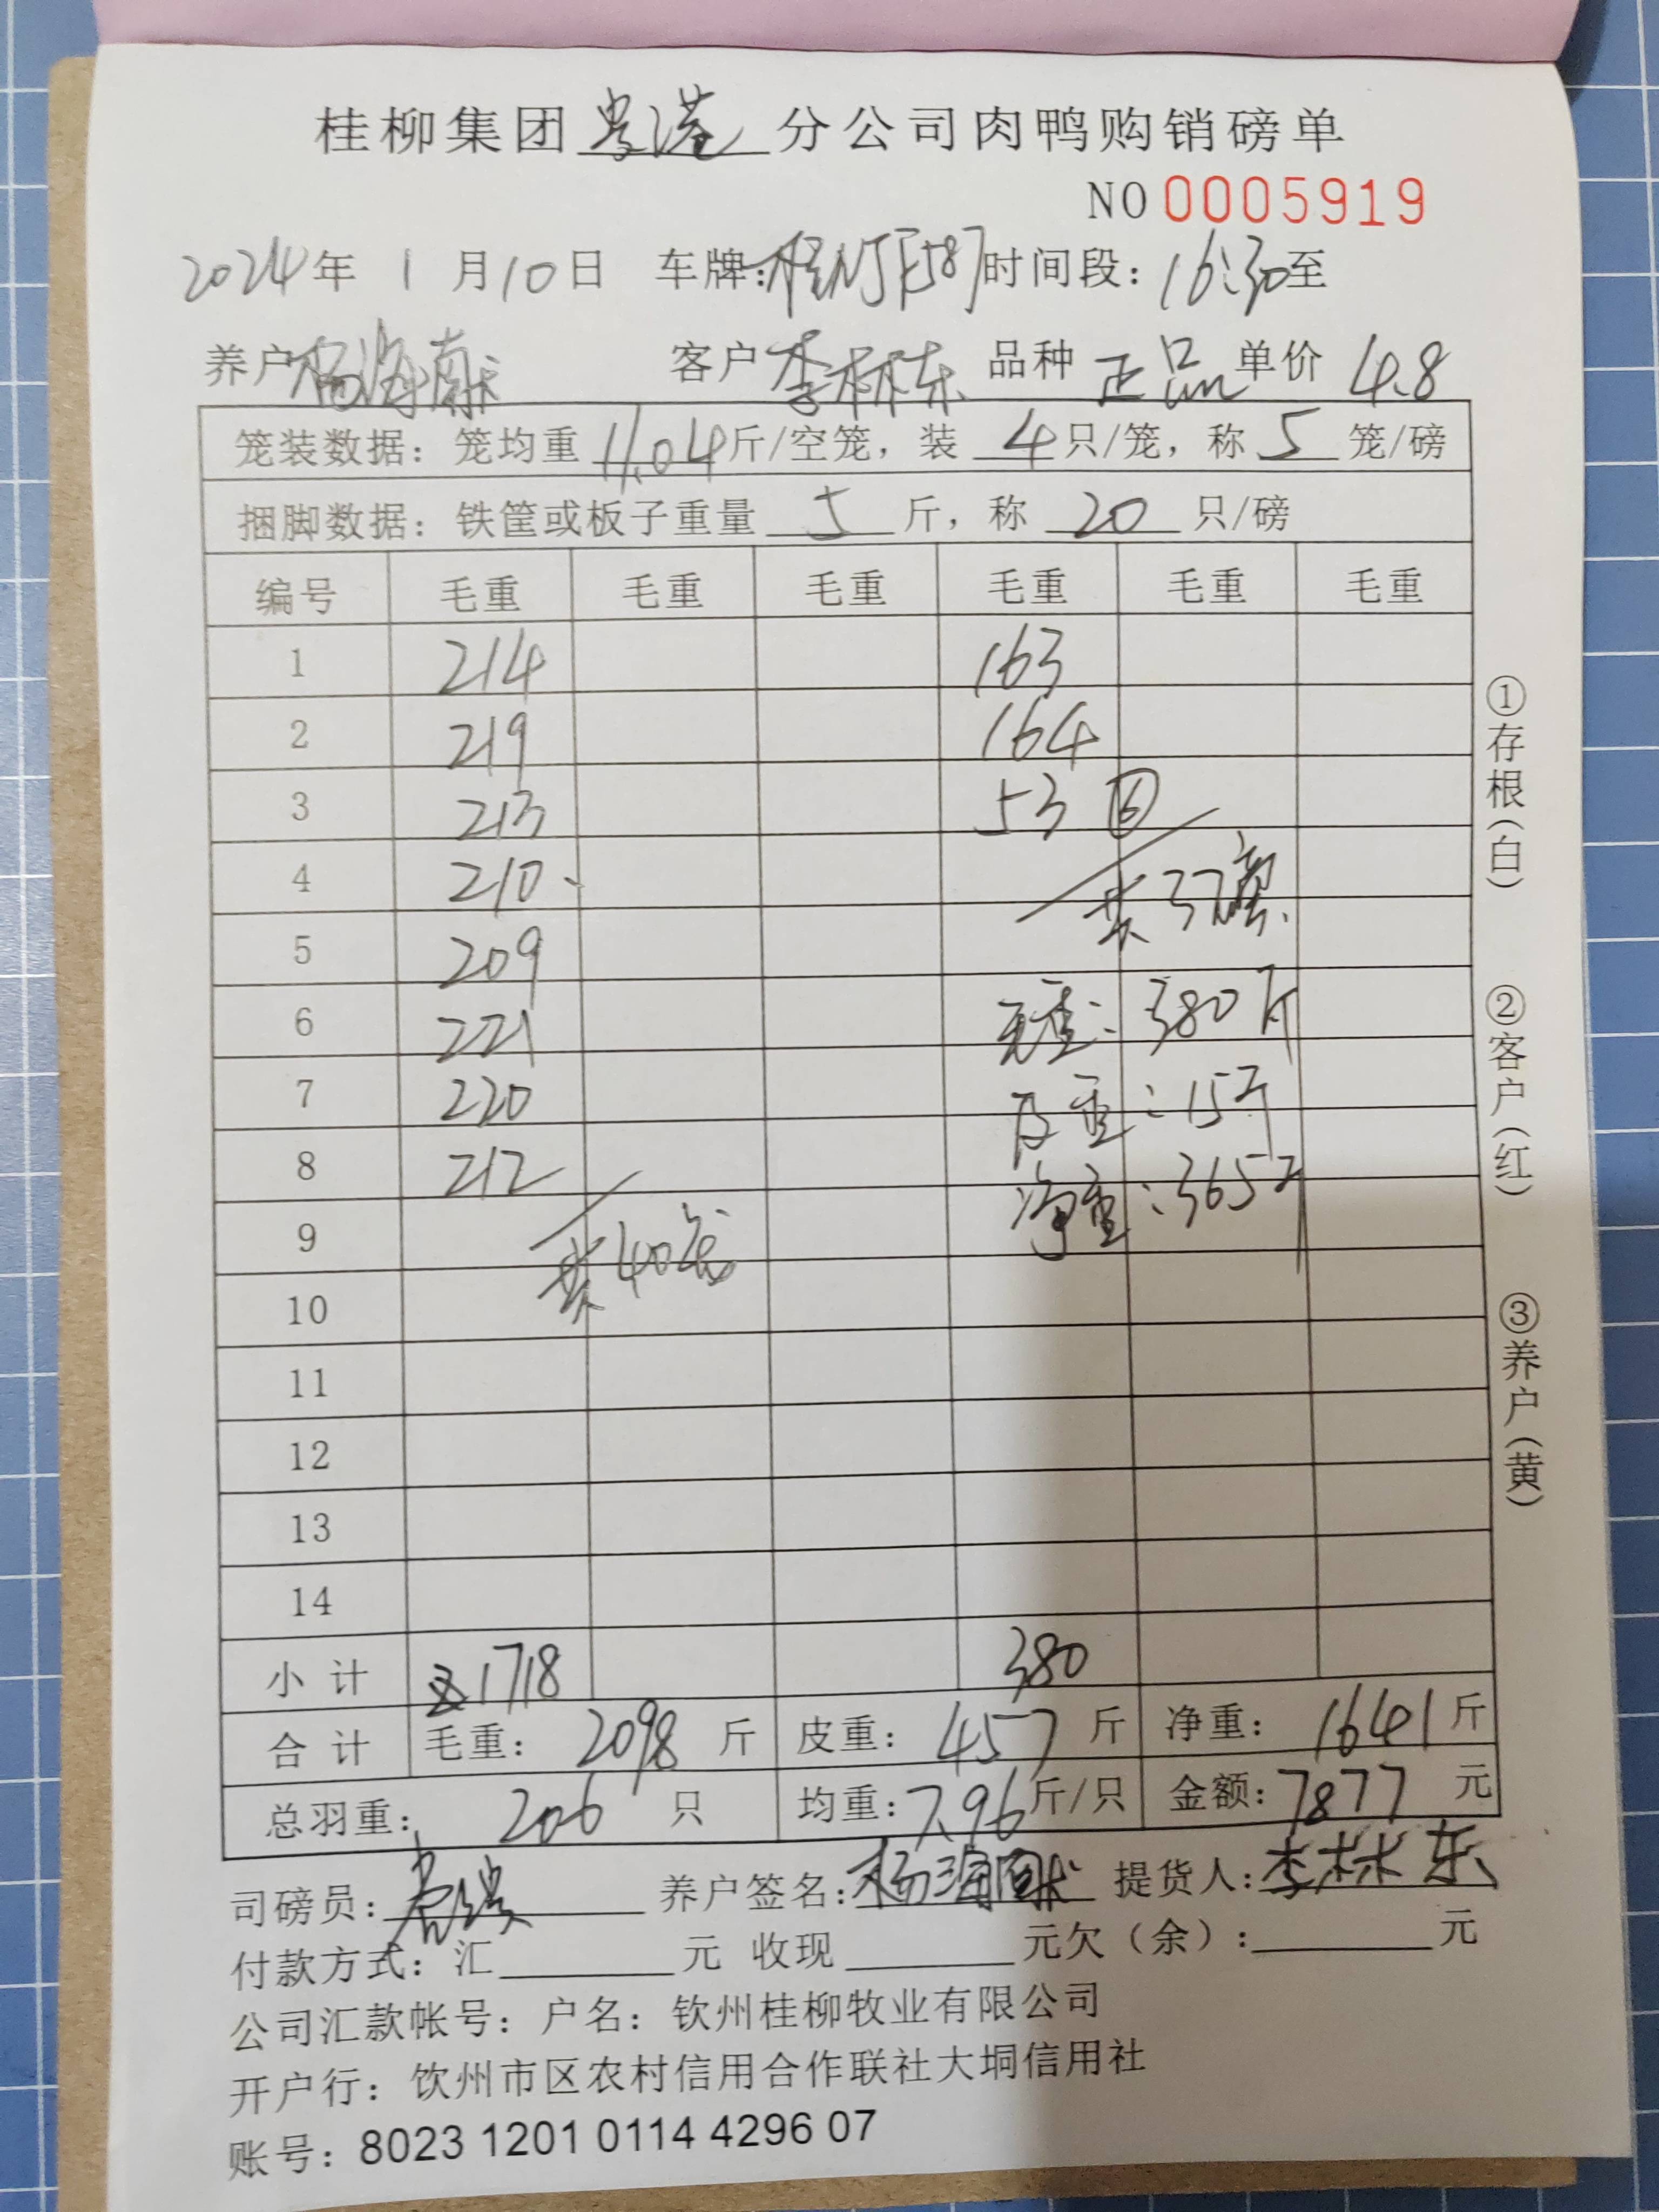 桂柳集团贵港分公司肉鸭购销磅单
NO 0005919
2024年 1月10日 车牌:桂NJF587 时间段:16:30至
养户 杨海 客户 李林东 品种 正品 单价 4.8
笼装数据:笼均重 11.04 斤/空笼,装 4 只/笼,称 5 笼/磅
捆脚数据:铁筐或板子重量 5 斤,称 20 只/磅
编号 毛重 毛重 毛重 毛重 毛重 毛重
1 214 163
2 219 164
3 213 53 ⑥
4 210
共37
5 209
6 221 毛重:380斤
7 220 皮重:15斤
8 212 净重:365斤
9 共40笼
10
11
12
13
14
小计 1718 380
合计 毛重: 2098 斤 皮重: 457 斤 净重: 1641 斤
总羽重: 206 只 均重:7.96 斤/只 金额:7877 元
司磅员: 养户签名:杨海 提货人:李林东
付款方式:汇 元 收现 元欠(余): 元
公司汇款帐号:户名:钦州桂柳牧业有限公司
开户行:饮州市区农村信用合作联社大垌信用社
账号:8023 1201 0114 4296 07
①存根(白)
②客户(红)
③养户(黄)